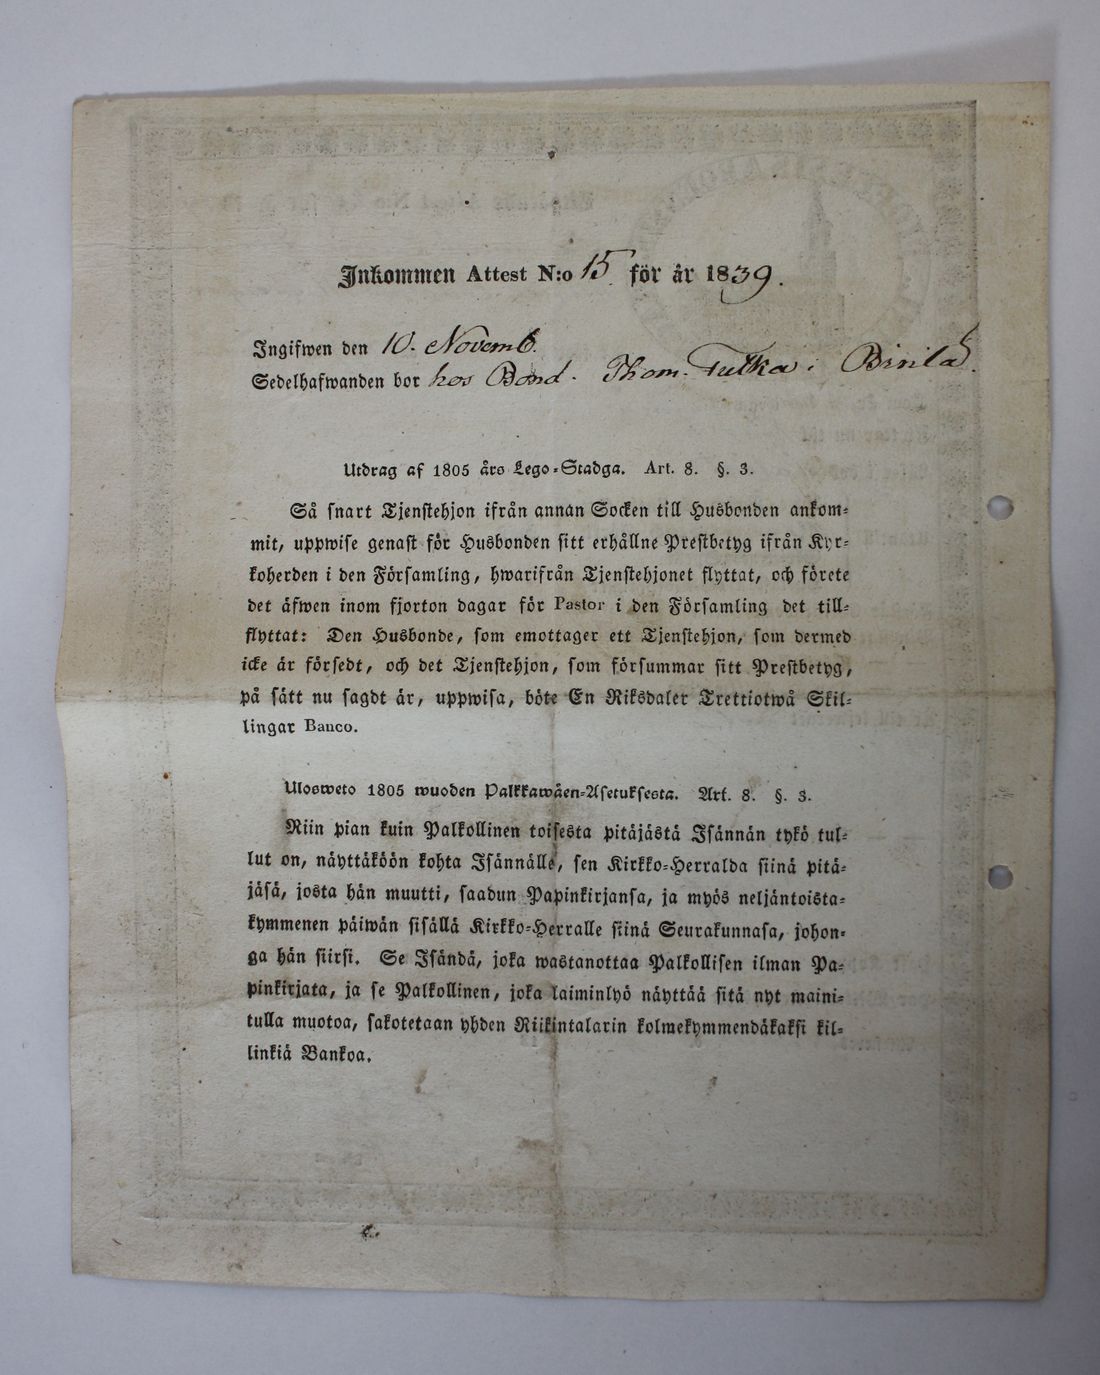 Inkommen Attest N:o 15. för år 1839.
Ingifwen den 10. Novemb.
Sedelhafwanden bor hos Bond. Thom. Tulka i
Utdrag af 1805 års Lego-Stadga. Art. 8. §. 3.
Så snart Tjenstehjon ifrån annan Socken till Husbonden ankom-
mit, uppwise genast för Husbonden sitt erhållne Prestbetyg ifrån Kyr-
koherden i den Församling, hwarifrån Tjenstehjonet flyttat, och förete
det äfwen inom fjorton dagar för Pastor i den Församling det till-
flyttat: Den Husbonde, som emottager ett Tjenstehjon, som dermed
icke är försedt, och det Tjenstehjon, som försummar sitt Prestbetyg,
på sätt nu sagdt är, uppwisa, böte En Riksdaler Trettiotwå Skil-
lingar Banco.
Ulosweto 1805 wuoden Palkkawäen-Asetuksesta. Art. 8. §. 3.
Niin pian kuin Palkollinen toisesta pitäjästä Isännän tykö tul-
lut on, näyttäköön kohta Isännälle, sen Kirkko-Herralda siinä pitä-
jäsä, josta hän muutti, saadun Papinkirjansa, ja myös neljäntoista-
kymmenen päiwän sisällä Kirkko-Herralle siinä Seurakunnasa, johon-
ga hän siirsi. Se Isändä, joka wastanottaa Palkollisen ilman Pa-
pinkirjata, ja se Palkollinen, joka laiminlyö näyttää sitä nyt maini-
tulla muotoa, sakotetaan yhden Riikintalarin kolmekymmendäkaksi kil-
linkiä Bankoa.